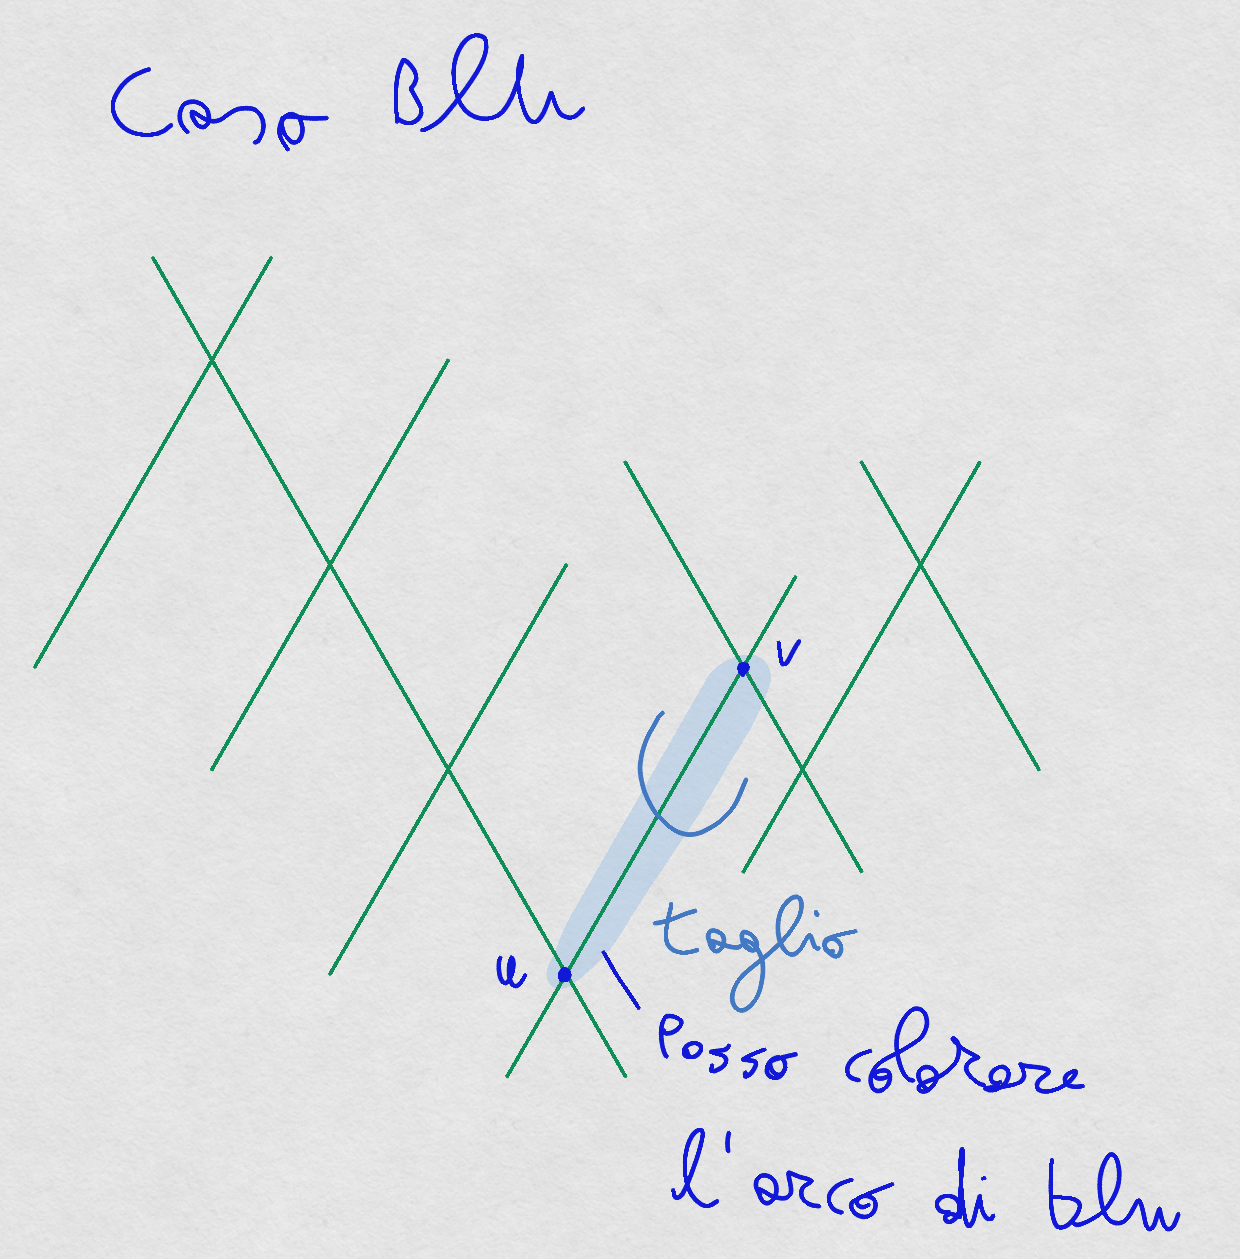 Caso Blu
v
taglio
u
Posso colorare
l'arco di blu